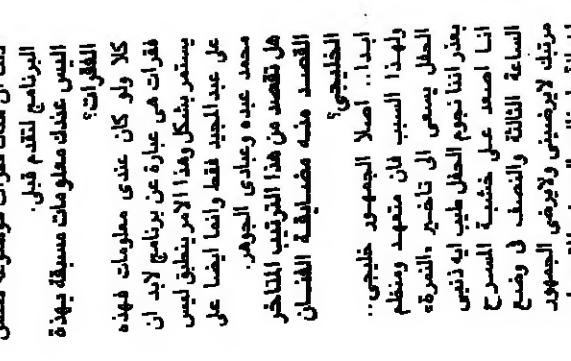 البرنامج لتقدم قبل.
اليس عندك معلومات مسبقة بهذة
الفقرات؟
كلا ولو كان عندى معلومات فهذه
فقرات هى عبارة عن برنامج لابد ان
يستمر بشكل وهذا الامر ينطبق ليس
على عبدالمجيد فقط وانما ايضا على
محمد عبده وعبادى الجوهر.
هل تقصد من هذا الترتيب المتاخر
القصد منه مضايقة الفنان
الخليجى؟
ابدا.. اصلا الجمهور خليجى..
ولهذا السبب فان متعهد ومنظم
الحفل يسعى الى تاخير «النمرة»
بعذر اننا نجوم الحفل طيب ايه ذنبى
انا اصعد على خشبة المسرح
الساعة الثالثة والنصف فى وضع
مرتبك لايرضينى ولايرضى الجمهور